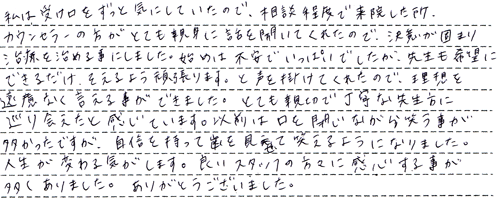 私は受け口をずっと気にしていたので、相談程度で来院した所、
カウンセラーの方がとても親身に話を聞いてくれたので、決心が固まり
治療を始める事にしました。始めは不安でいっぱいでしたが、先生も希望に
できるだけ、そえるよう頑張ります。と声を掛けてくれたので、理想を
遠慮なく言える事ができました。とても親切で丁寧な先生方に
巡り会えたと感じています。以前は口を閉じながら笑う事が
多かったですが、自信を持って歯を見せて笑えるようになりました。
人生が変わる気がします。良いスタッフの方々に感心する事が
多くありました。ありがとうございました。